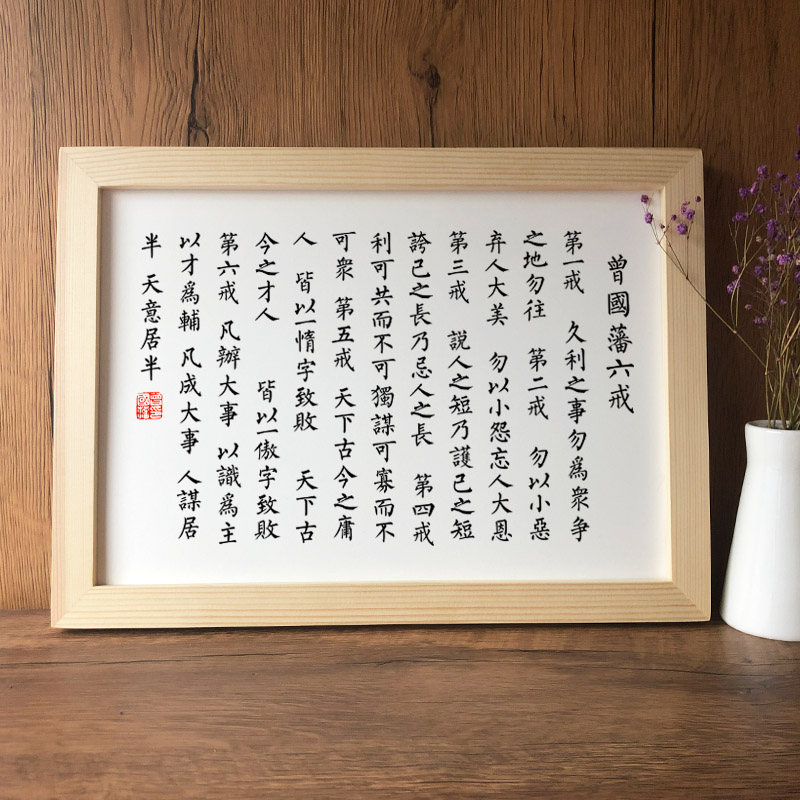 曾國藩六戒
第一戒 久利之事勿為衆争
之地勿往 第二戒 勿以小惡
弃人大美 勿以小怨忘人大恩
第三戒 説人之短乃護己之短
誇己之長乃忌人之長 第四戒
利可共而不可獨謀可寡而不
可衆 第五戒 天下古今之庸
人 皆以一惰字致敗 天下古
今之才人 皆以一傲字致敗
第六戒 凡辦大事 以識為主
以才為輔 凡成大事 人謀居
半 天意居半